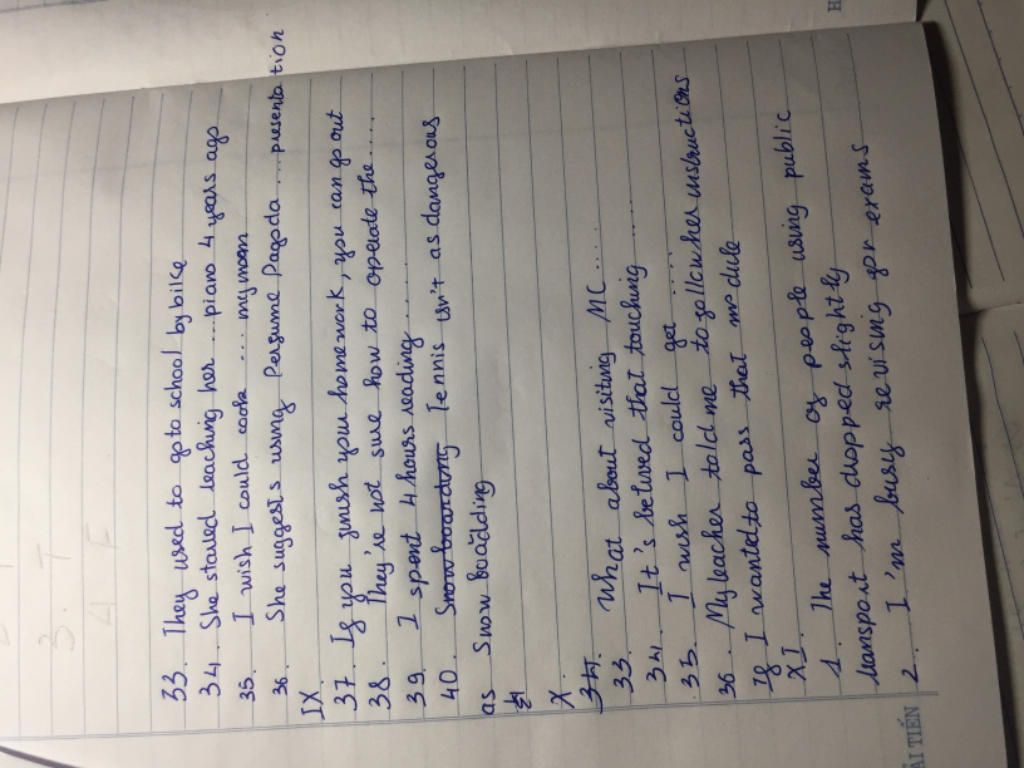 3. T
4 F
33. They used to go to school by bike
34. She started teaching her ... piano 4 years ago
35. I wish I could cook .... my mom
36. She suggests using Perfume Pagoda .... presentation
IX.
37. If you finish your homework, you can go out
38. They're not sure how to operate the .....
39. I spent 4 hours reading .....
40. Snowboarding Tennis isn't as dangerous
as snowboarding
X.
33. What about visiting MC .....
34. It's believed that touching .....
35. I wish I could get .....
36. My teacher told me to follow her instructions
If I wanted to pass that module
XI.
1. The number of people using public
transport has dropped slightly
2. I'm busy revising for exams
ẢI TIẾN